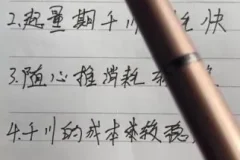 2.起量期千川
快
3.随心推消耗
4.千川的成本来较稳